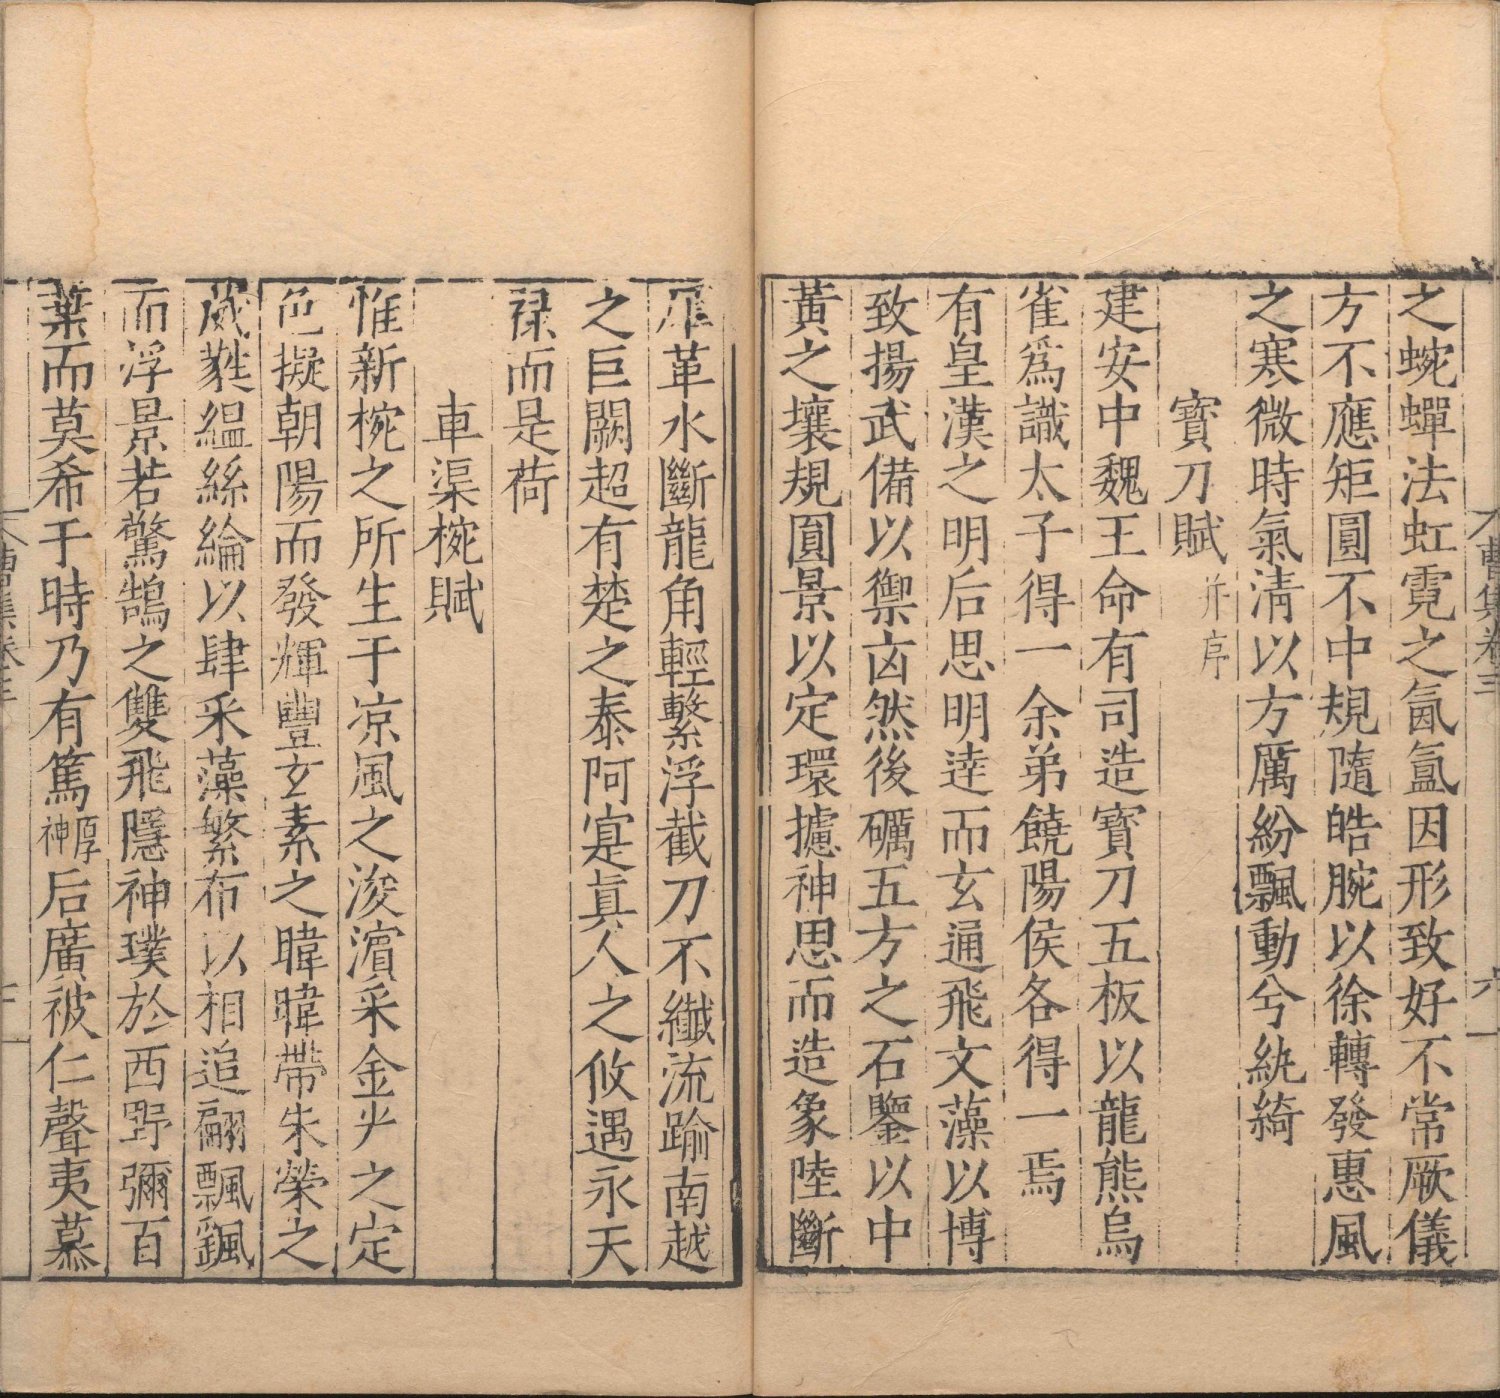 之蜿蟬法虹霓之氤氳因形致好不常厥儀
方不應矩圓不中規隨皓腕以徐轉發惠風
之寒微時氣清以方厲紛飄動兮紈綺
寶刀賦并序
建安中魏王命有司造寶刀五板以龍熊烏
雀爲識太子得一余弟饒陽侯各得一焉
有皇漢之明后思明逹而玄通飛文藻以博
致揚武備以禦凶然後礪五方之石鑒以中
黃之壤規圓景以定環攄神思而造象陸斷
犀革水斷龍角輕繫浮截刀不纖流踰南越
之巨闕超有楚之泰阿寔眞人之攸遇永天
祿而是荷
車渠椀賦
惟新椀之所生于凉風之浚濵采金光之定
色擬朝陽而發輝豐玄素之暐暐帶朱榮之
葳蕤縕絲綸以肆采藻繁布以相追翩飄颻
而浮景若驚鵠之雙飛隱神璞於西野彌百
葉而莫希于時乃有篤厚神后廣被仁聲夷慕
曹集卷三
六
曹集卷三